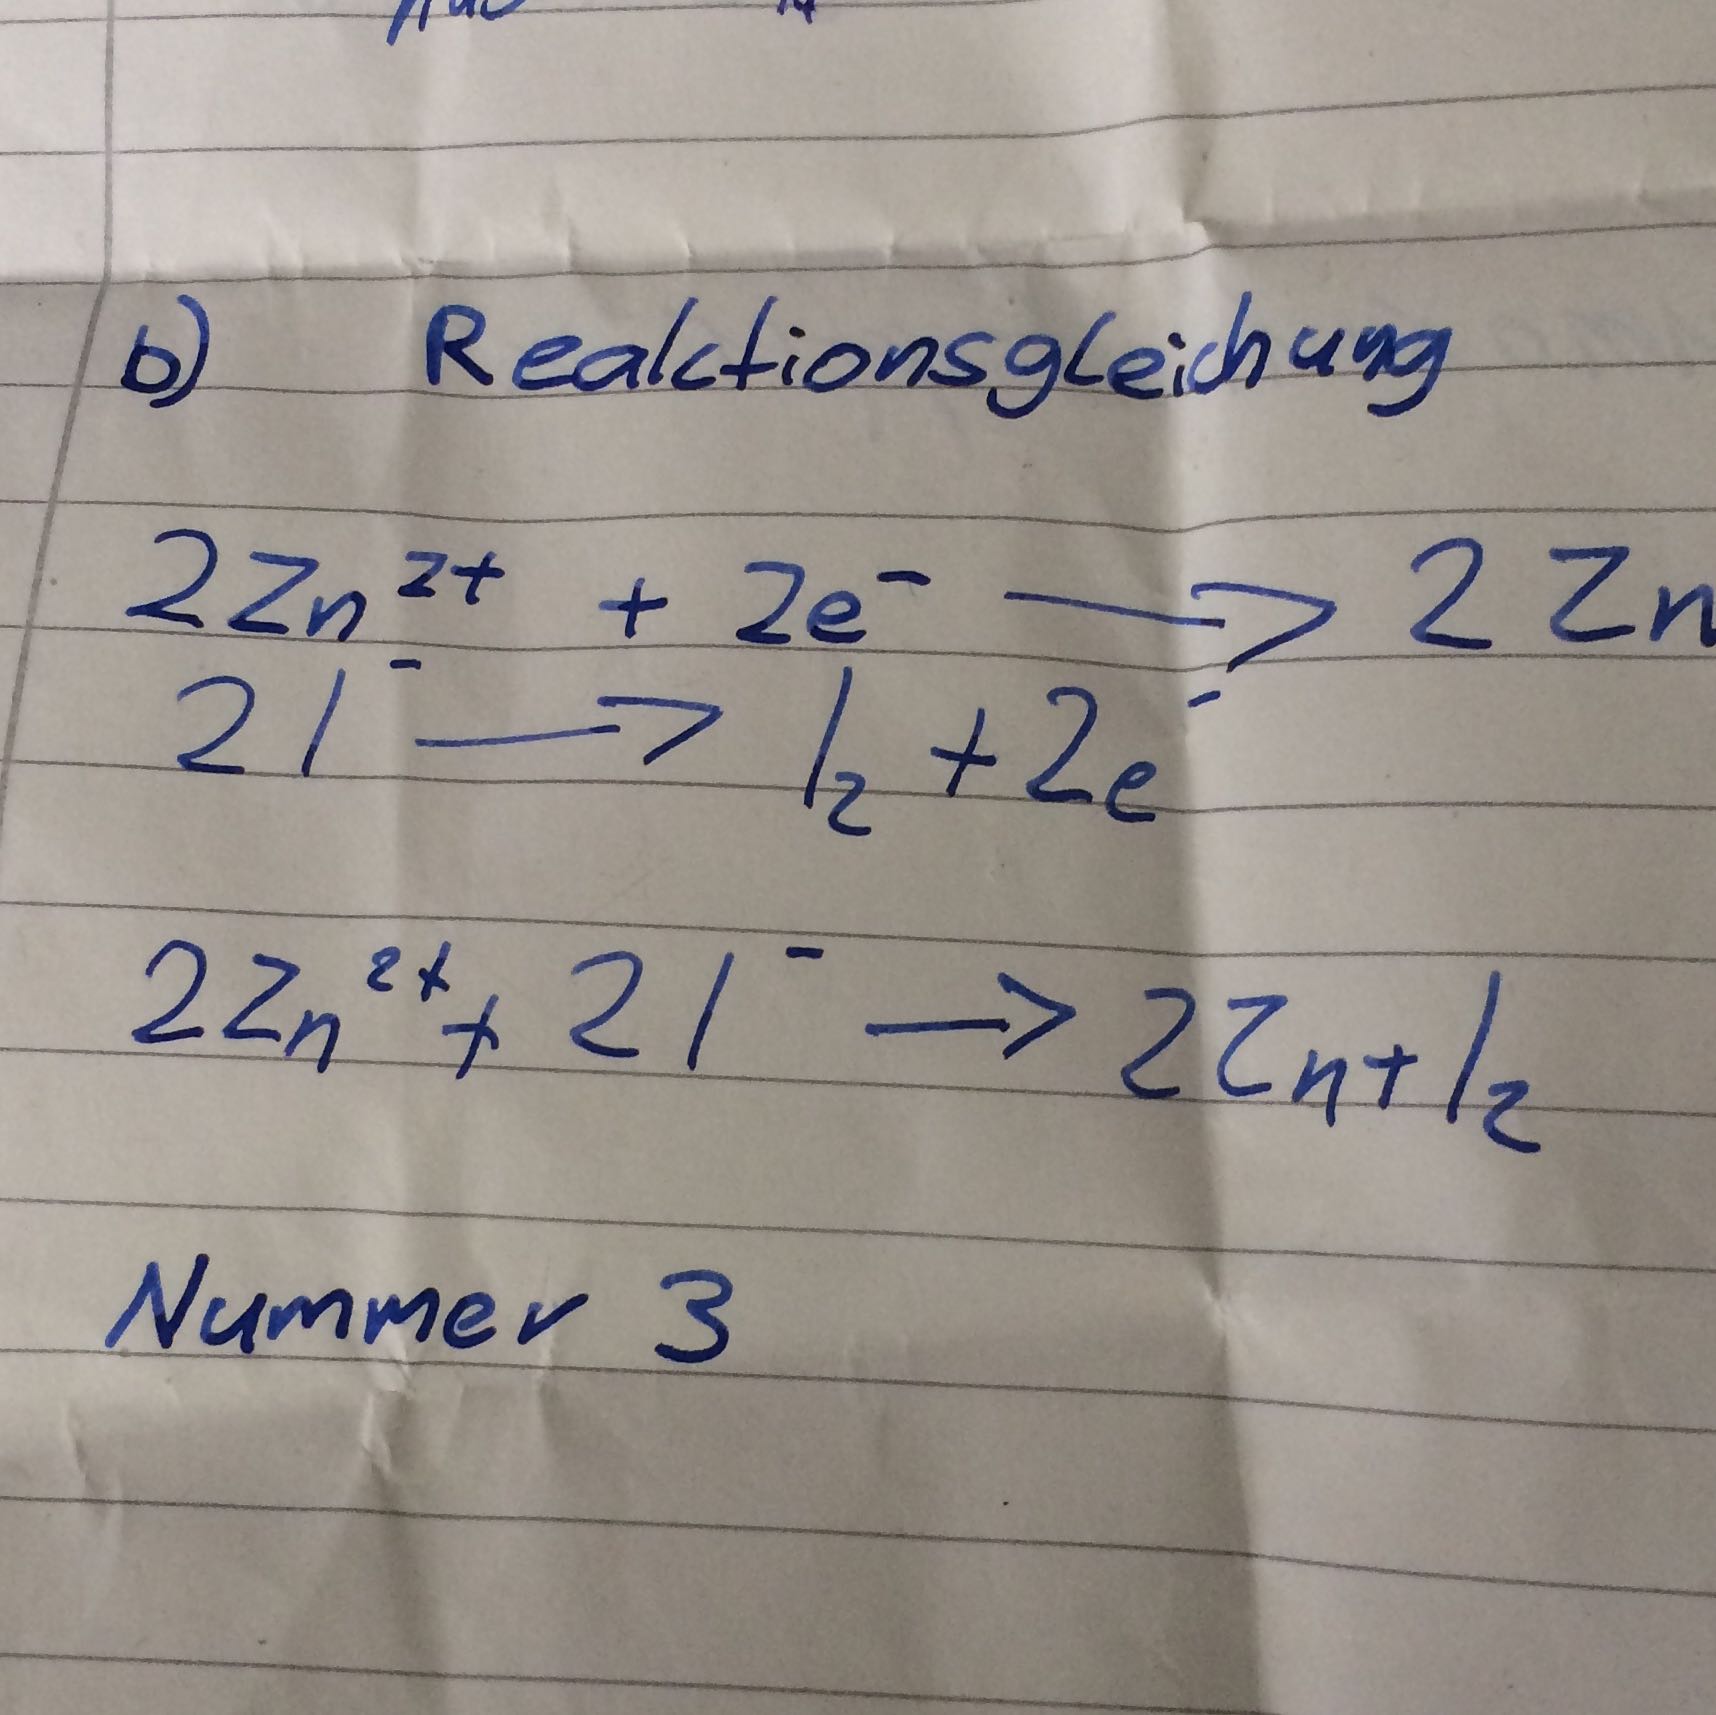 b) Reaktionsgleichung
2Zn²⁺ + 2e⁻ → 2Zn
2I⁻ → I₂ + 2e⁻
2Zn²⁺ + 2I⁻ → 2Zn + I₂
Nummer 3